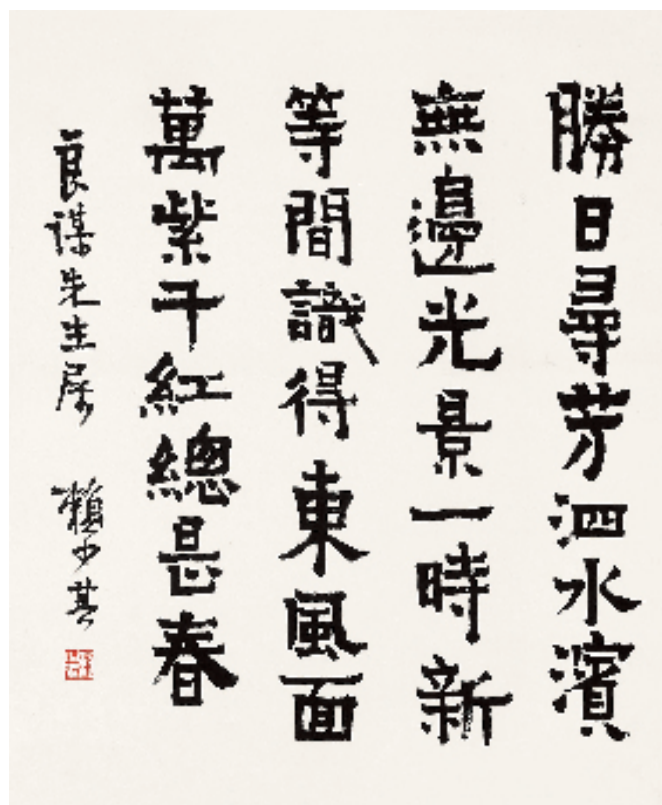 勝日尋芳泗水濱
無邊光景一時新
等間識得東風面
萬紫千紅總是春
良謀先生屬 賴少其